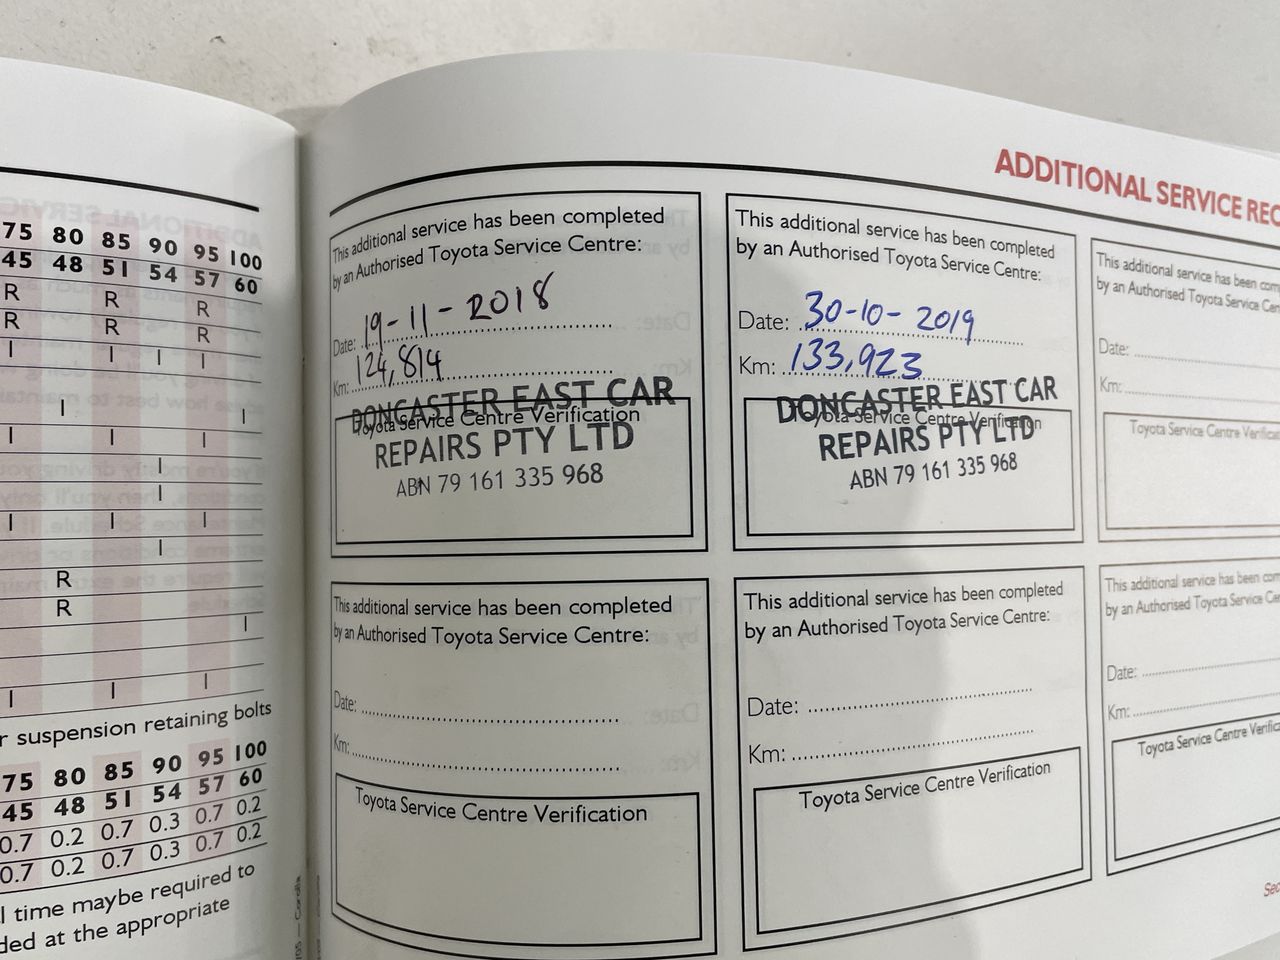 75 80 85 90 95 100
45 48 51 54 57 60
R R R
R R R
I I I I
I I
I I I
I
I
I I I
I
R
R
I
I I I
r suspension retaining bolts
75 80 85 90 95 100
45 48 51 54 57 60
0.7 0.2 0.7 0.3 0.7 0.2
0.7 0.2 0.7 0.3 0.7 0.2
l time maybe required to
ded at the appropriate
ADDITIONAL SERVICE REC
This additional service has been completed
by an Authorised Toyota Service Centre:
Date: 19-11-2018
Km: 124,814
Toyota Service Centre Verification
DONCASTER EAST CAR
REPAIRS PTY LTD
ABN 79 161 335 968
This additional service has been completed
by an Authorised Toyota Service Centre:
Date: 30-10-2019
Km: 133,923
Toyota Service Centre Verification
DONCASTER EAST CAR
REPAIRS PTY LTD
ABN 79 161 335 968
This additional service has been com
by an Authorised Toyota Service Cen
Date:
Km:
Toyota Service Centre Verifica
This additional service has been completed
by an Authorised Toyota Service Centre:
Date:
Km:
Toyota Service Centre Verification
This additional service has been completed
by an Authorised Toyota Service Centre:
Date:
Km:
Toyota Service Centre Verification
This additional service has been com
by an Authorised Toyota Service Cen
Date:
Km:
Toyota Service Centre Verifica
Corolla